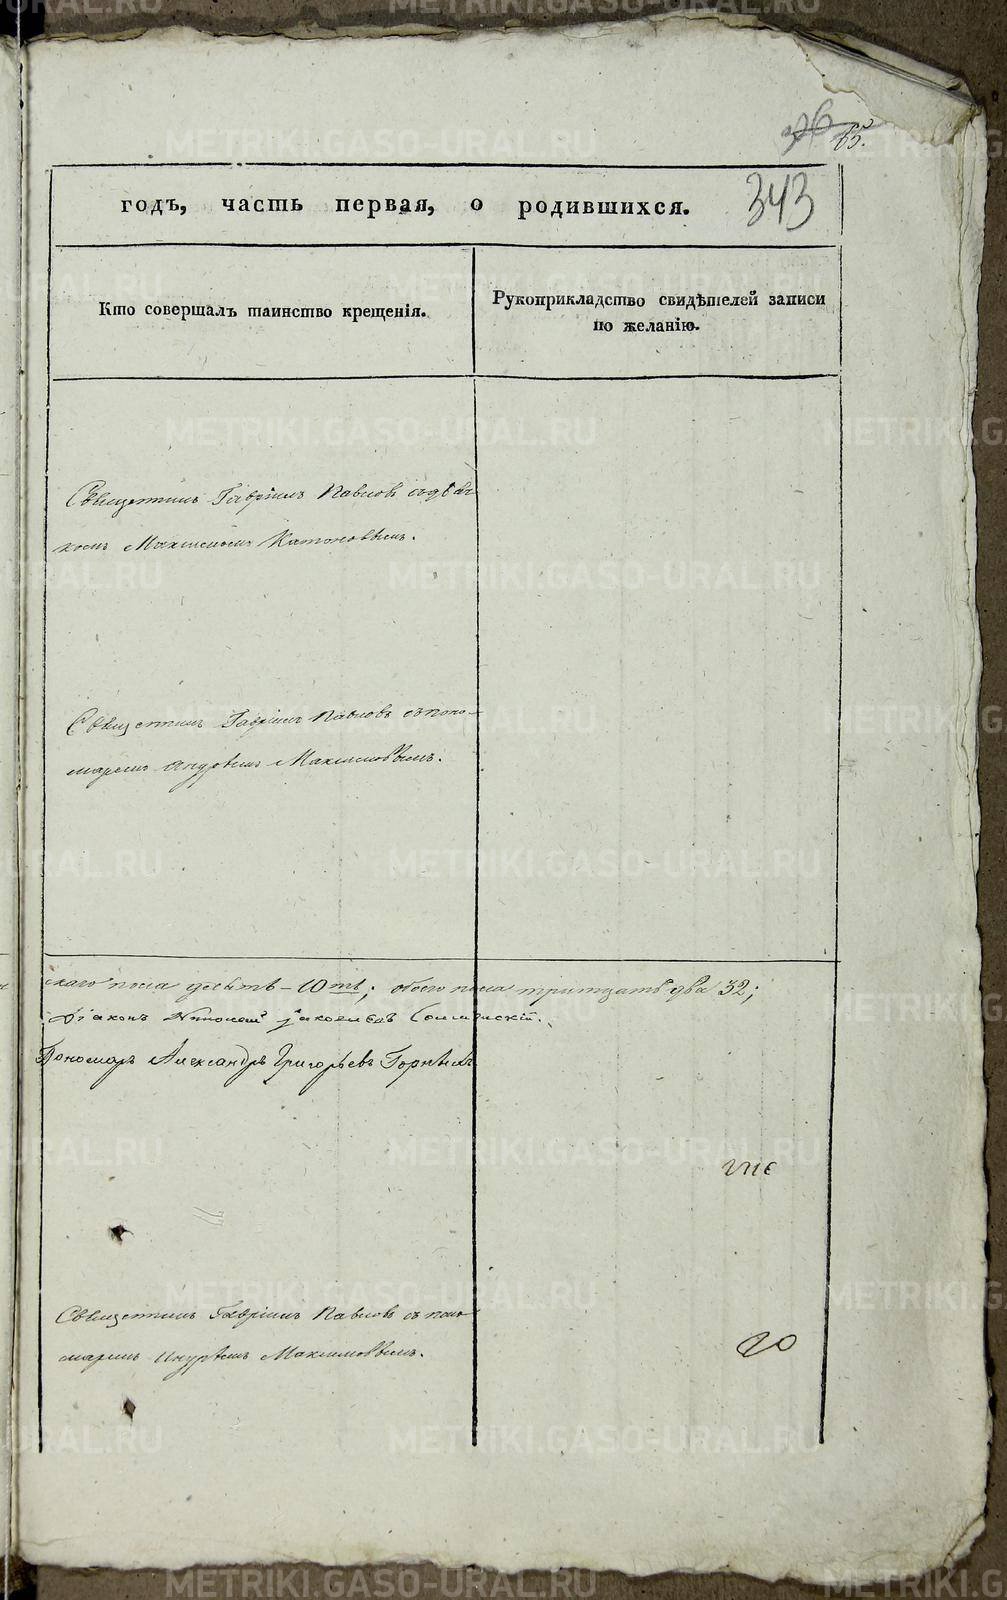 76 65.
343
годъ, часть первая, о родившихся.
Кто совершалъ таинство крещенія.
Рукоприкладство свидѣтелей записи
по желанію.
Священникъ Гавріилъ Павловъ съ дьяч
комъ Максимомъ Катоновымъ.
Священникъ Гавріилъ Павловъ съ поно-
маремъ Андреемъ Максимовымъ.
скаго пола десять - 10ть; обоего пола тритцать два 32;
Діаконъ Іаковлевъ
Пономарь Александръ Григорьевъ
Священникъ Гавріилъ Павловъ съ поно
маремъ Андреемъ Максимовымъ.
METRIKI.GASO-URAL.RU